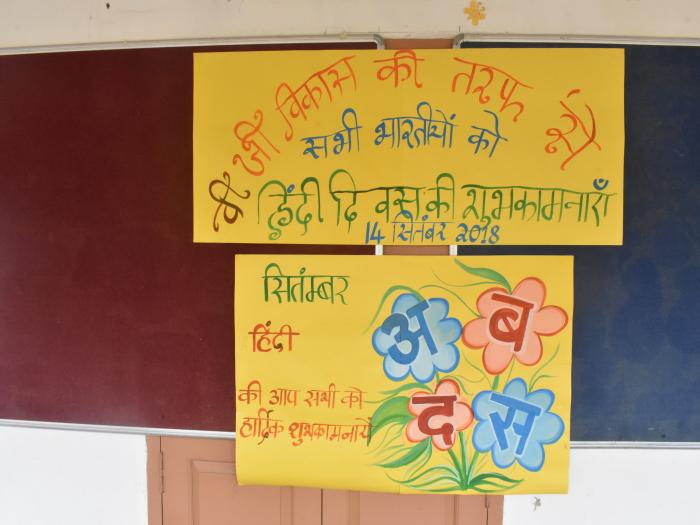 वी जी विकास की तरफ से
सभी भारतीयों को
हिंदी दिवस की शुभकामनाएँ
14 सितंबर 2018
सितंम्बर
हिंदी
की आप सभी को
हार्दिक शुभकामनायें
अ ब
द स